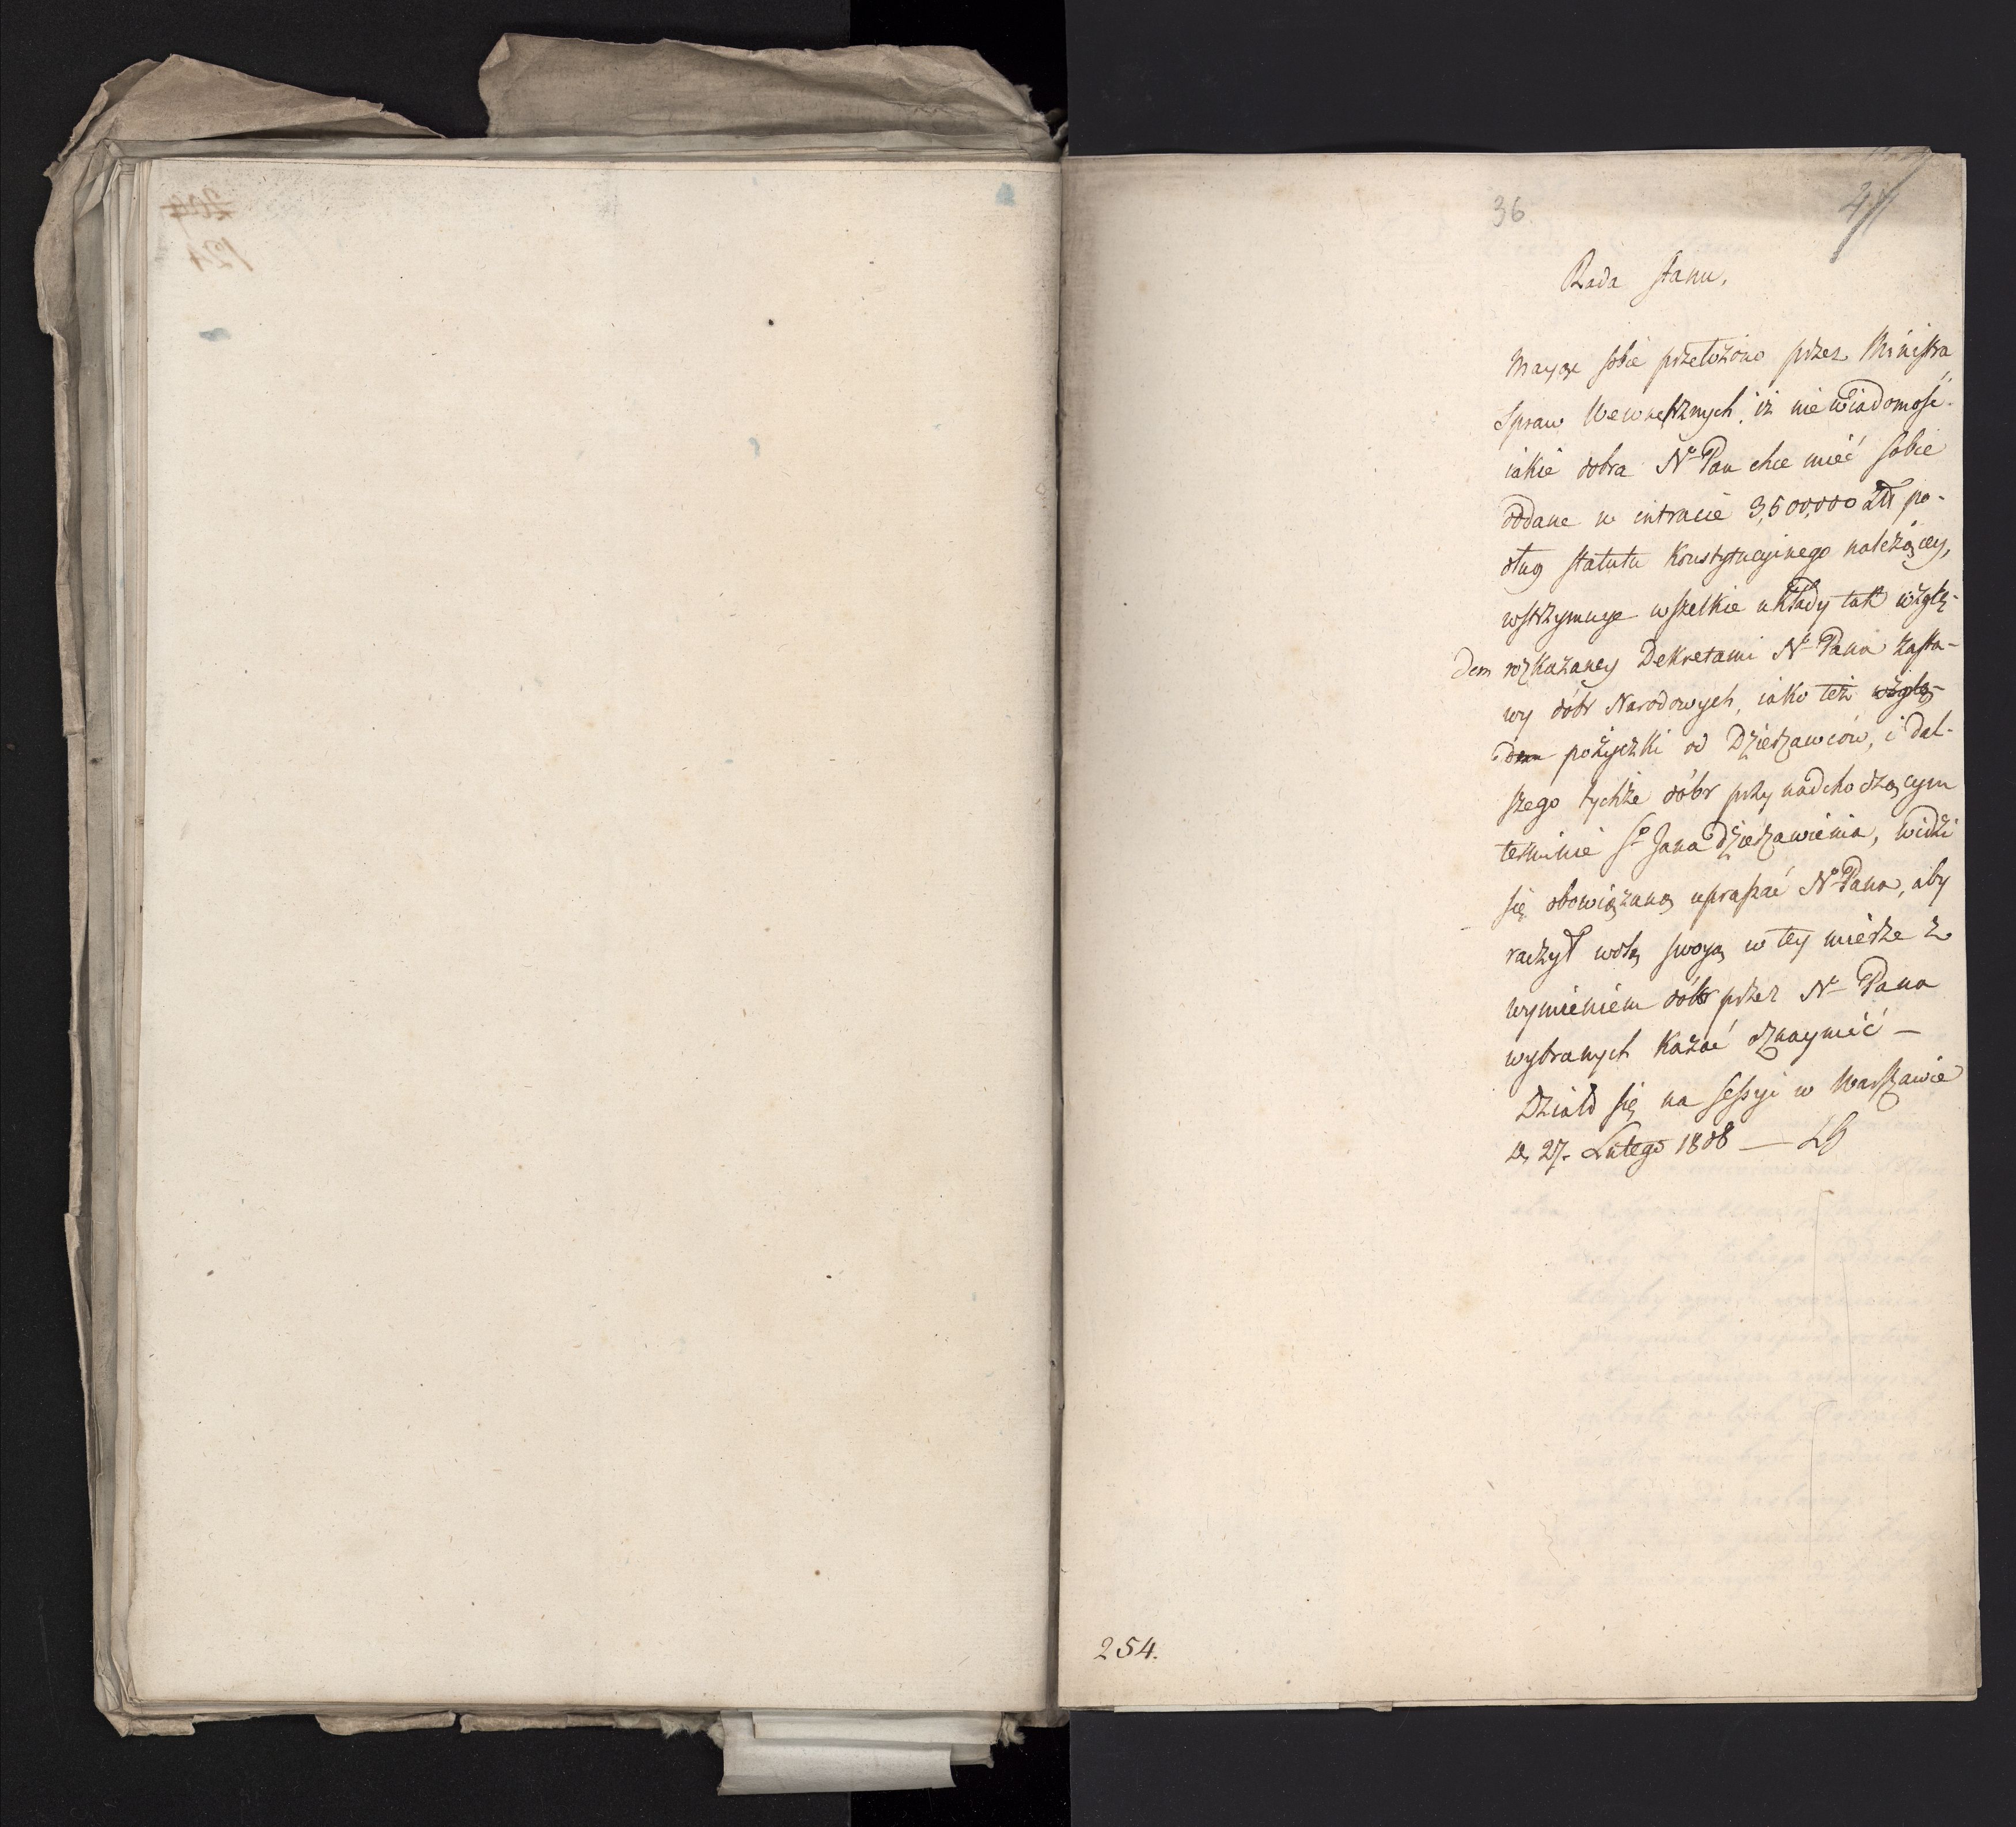 36
Rada Stanu.
Maiąc sobie przełożono przez Ministra
Spraw Wewnętrznych, iż niewiadomość
iakie dobra Nº Pan chce mieć sobie
oddane w intracie 3,500,000 Złł po-
dług statutu Konstytucyinego należącey,
wstrzymuje wszelkie układy tak wzglę-
dem rozkazaney Dekretami Nº Pana zasta-
wy dóbr Narodowych, iako też wzglę-
dem pożyczki od Dzierżawców, i dal-
szego tychże dóbr przy nadchodzącym
terminie Sº Jana dzierżawienia, widzi
się obowiązaną upraszać Nº Pana, aby
raczył wolę swoją w tey mierze z
wymieniem dóbr przez Nº Pana
wybranych kazać oznaymić —
Działo się na sessyi w Warszawie
d. 27. Lutego 1808 —
254.